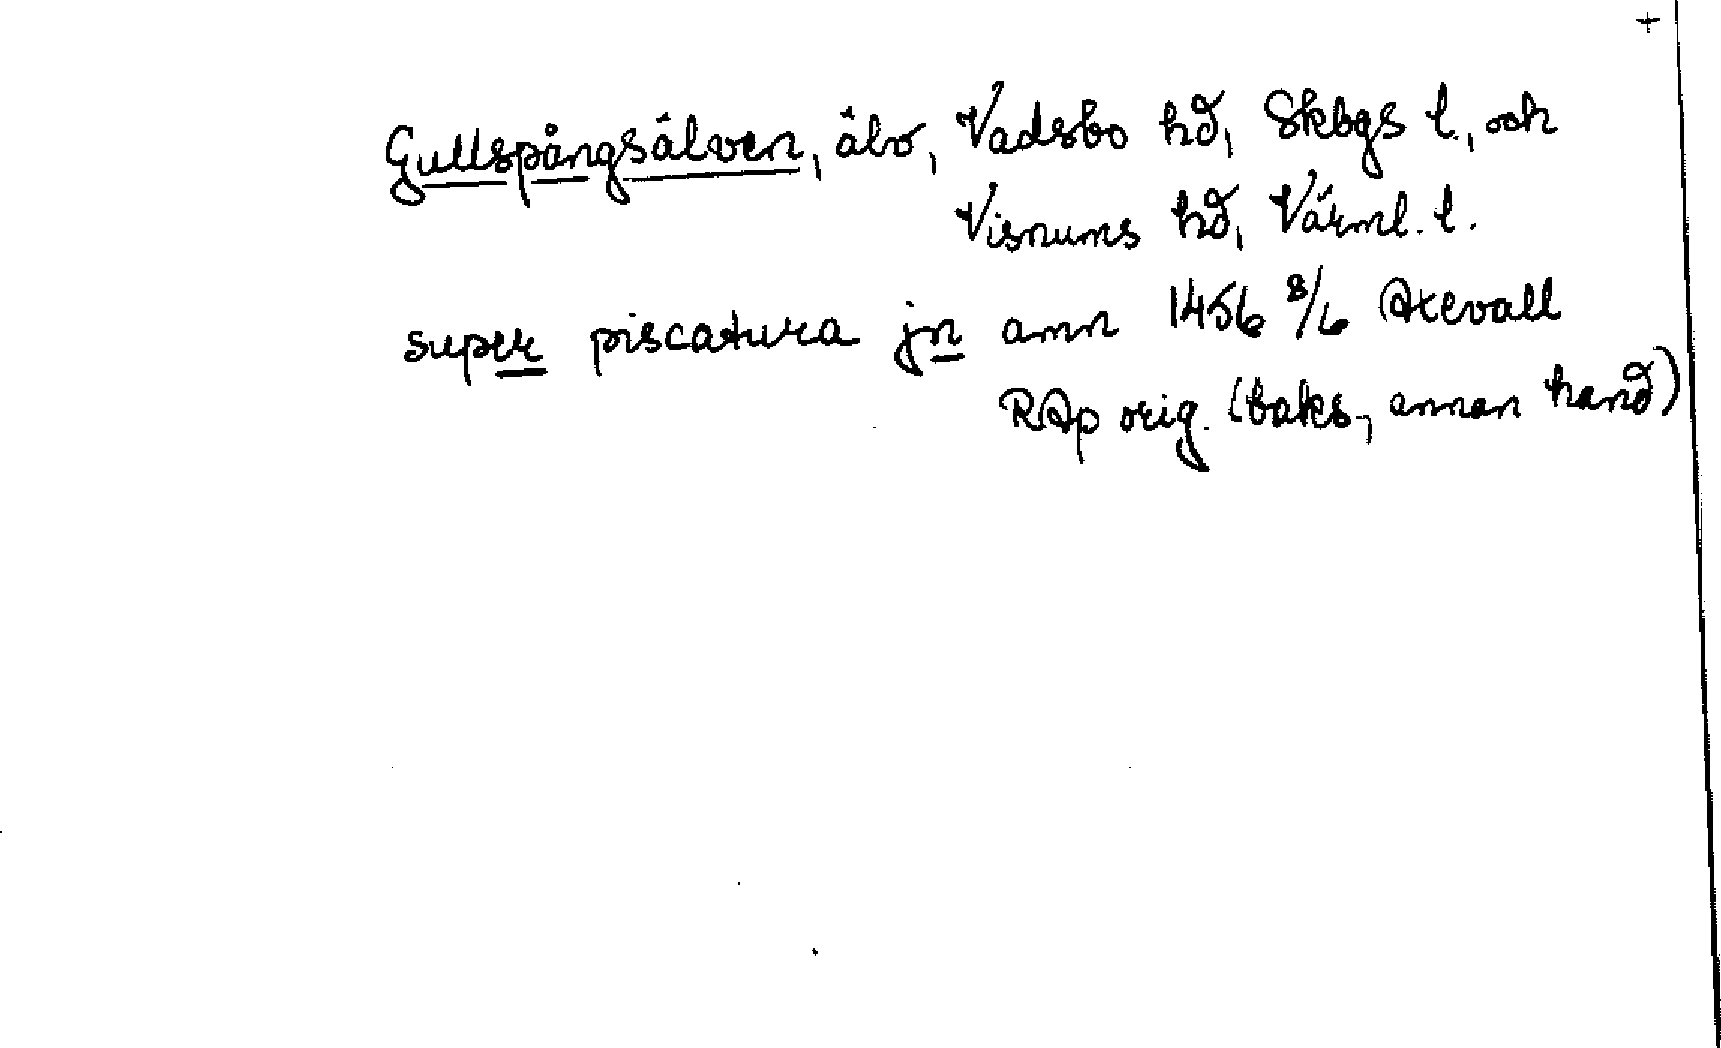 +
Gullspångsälven, älv, Vadsbo hd, Skbgs l., och
Visnums hd, Värml. l.
super piscatura jn amn 1456 8/6 Axevall
RAp orig. (baks., annan hand)